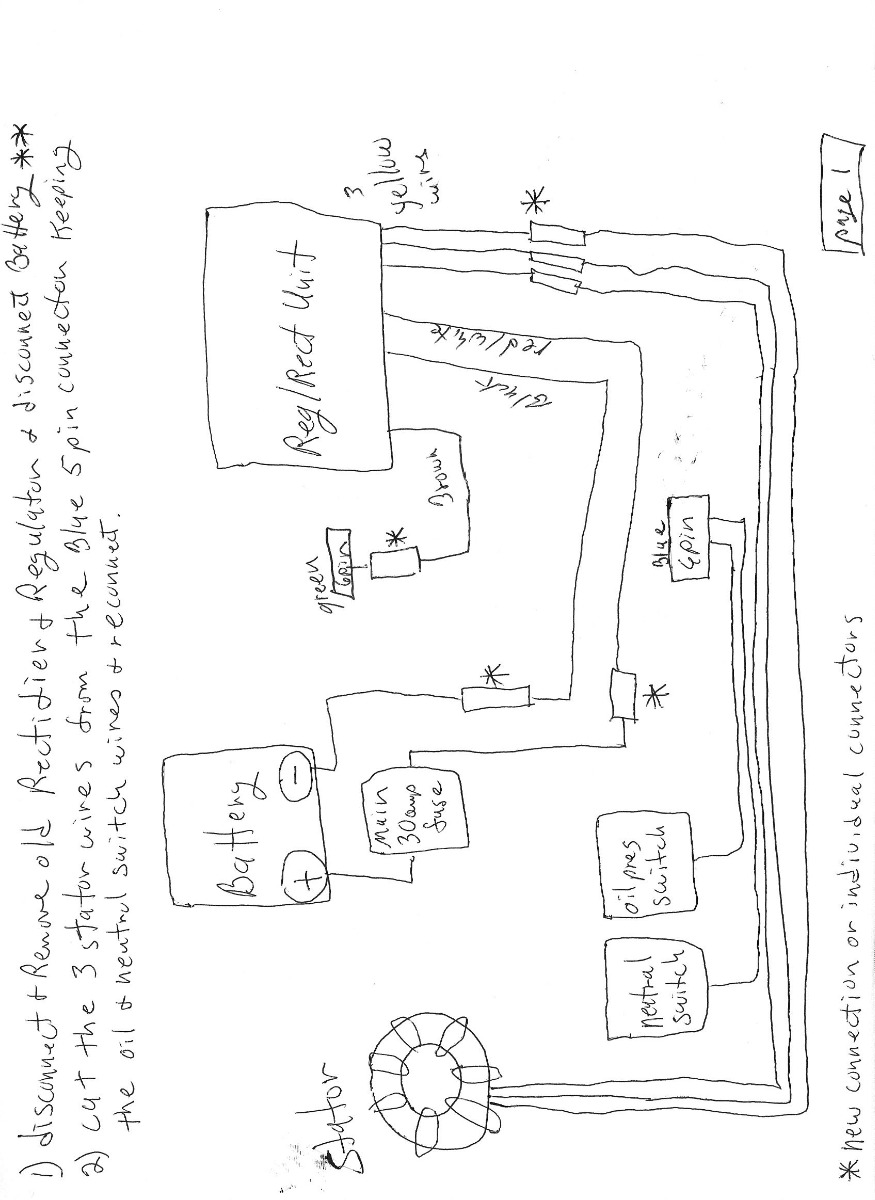 1) disconnect + Remove old Rectifier + Regulator & disconnect Battery **
2) cut the 3 stator wires from the Blue 5 pin connector keeping
the oil & neutral switch wires & reconnect.
Reg/Rect Unit
3
yellow
wires
*
red/white
Black
Brown
green
6pin
*
Blue
6pin
Battery
+
-
*
*
Main
30amp
fuse
oil pres
switch
neutral
switch
Stator
* new connection or individual connectors
page 1